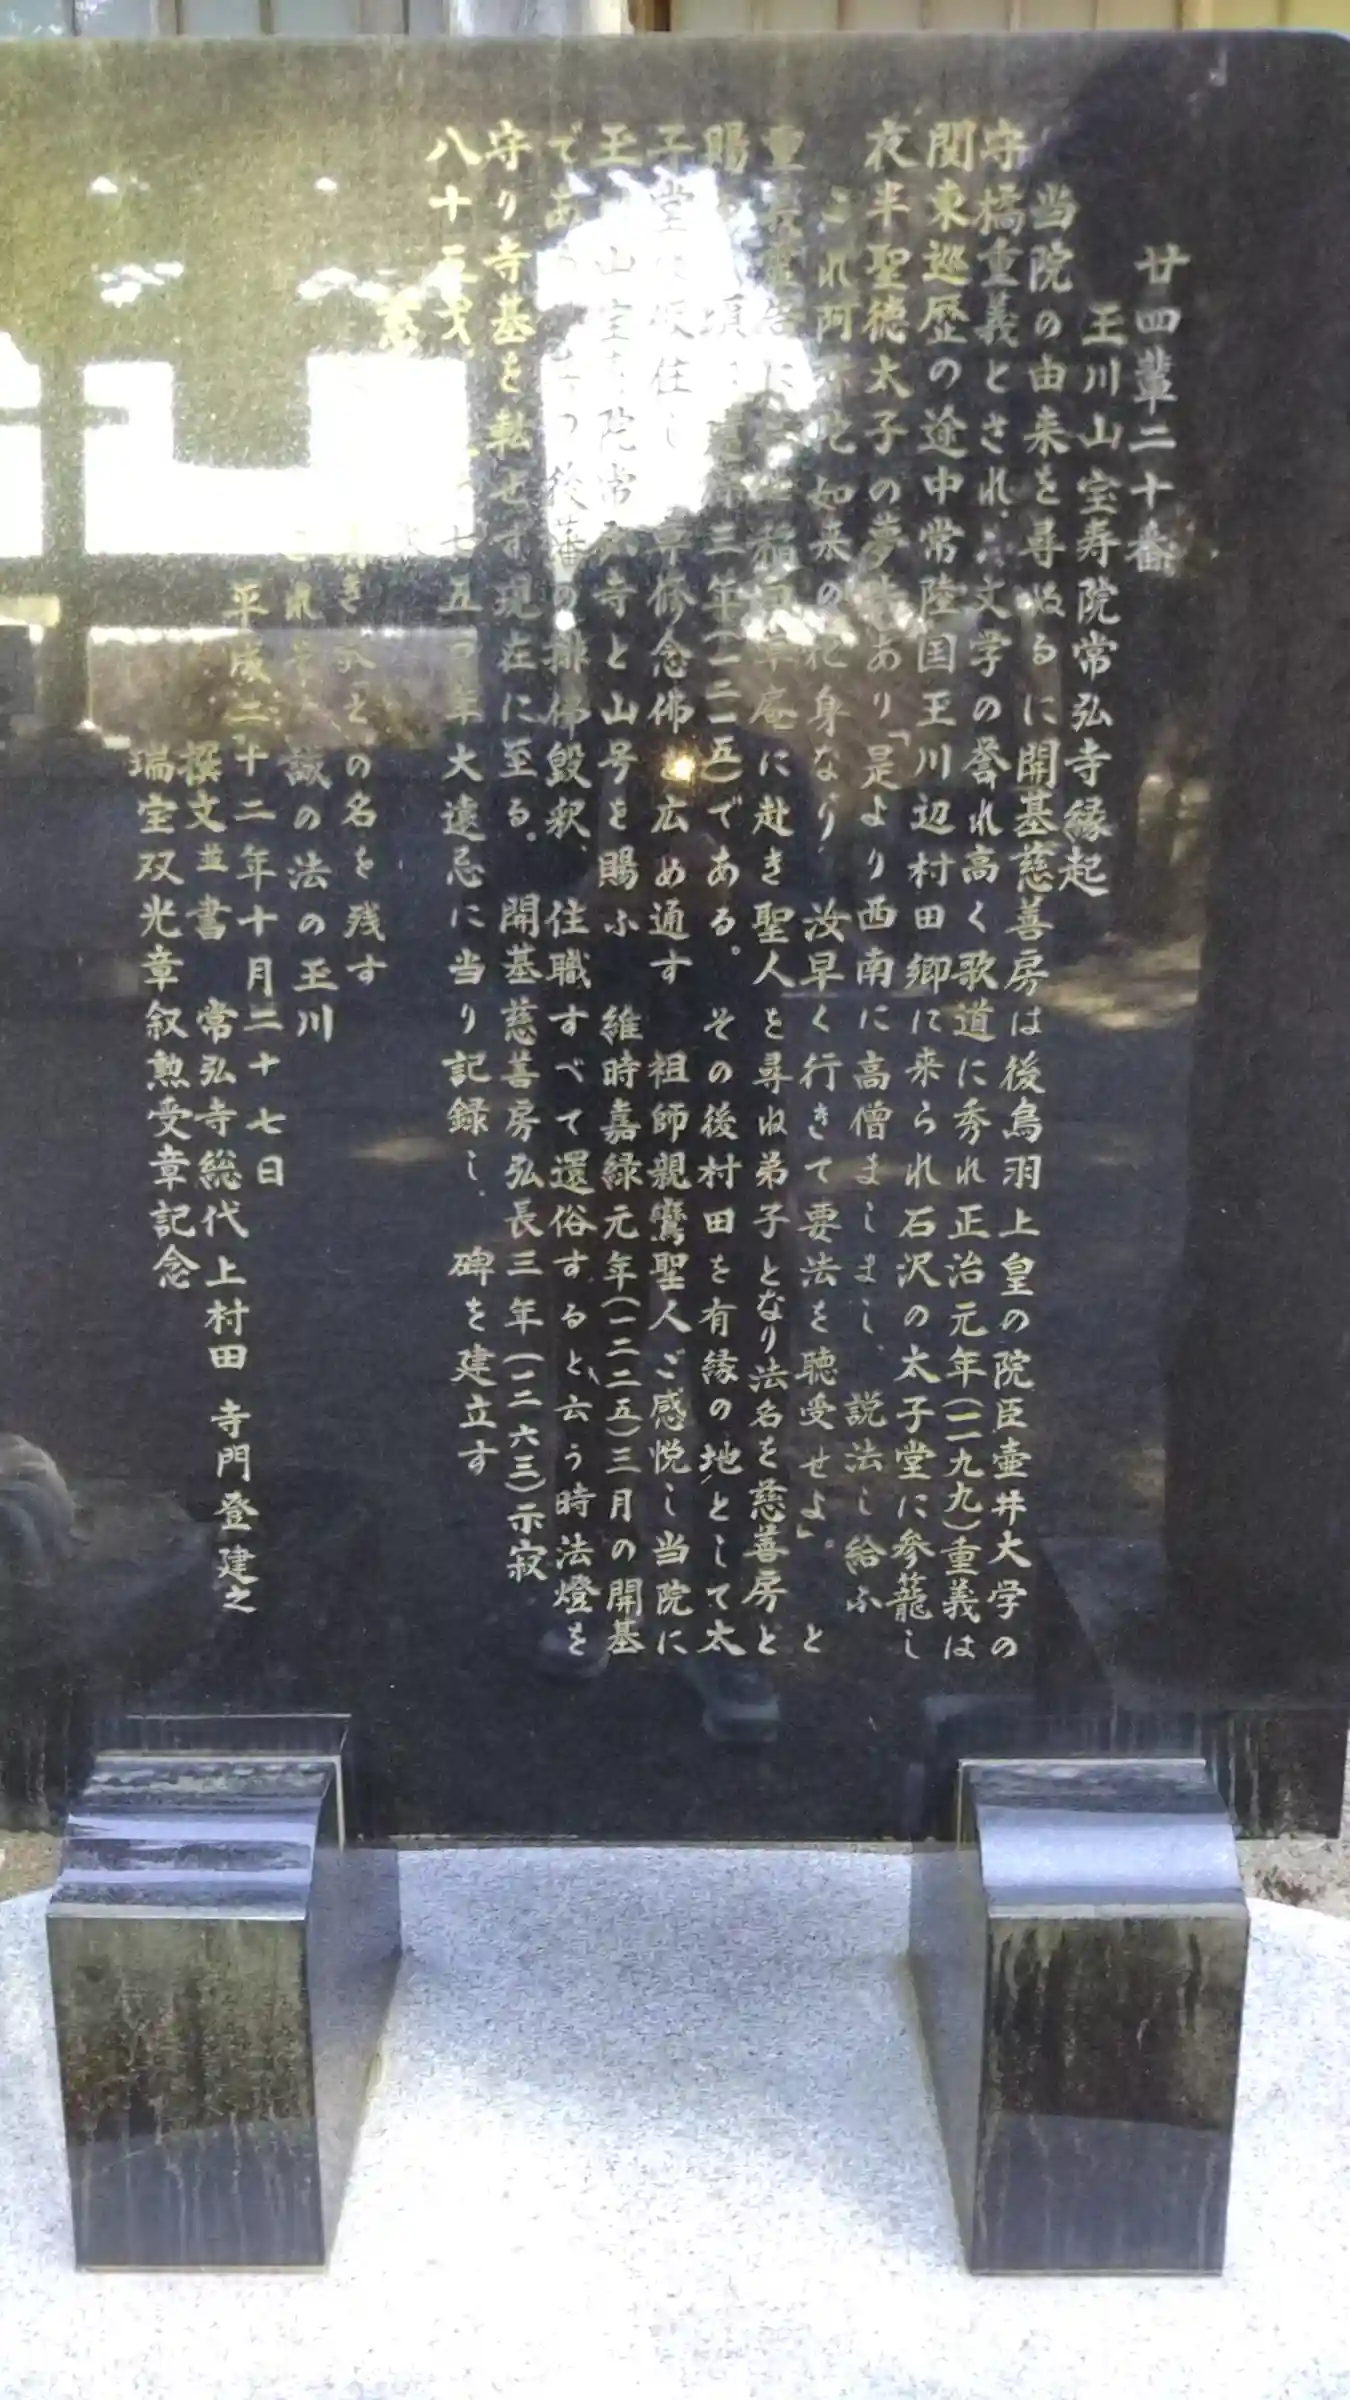 廿四輩二十番
玉川山宝寿院常弘寺縁起
当院の由来を尋ぬるに開基慈善房は後鳥羽上皇の院臣壷井大学の
守橘重義とされ文学の誉れ高く歌道に秀れ正治元年(一一九九)重義は
関東巡歴の途中常陸国玉川辺村田郷に来られ石沢の太子堂に参籠し
夜半聖徳太子の夢告あり「是より西南に高僧ましまし、説法し給ふ
これ阿弥陀如来の化身なり、汝早く行きて要法を聴受せよ」。と
重義霊告に 稲田草庵に赴き聖人を尋ね弟子となり法名を慈善房と
賜 頃は建保三年(一二一五)である。その後村田を有縁の地として太
子堂に 住し 専修念佛を広め通す 祖師親鸞聖人ご感悦し当院に
玉川山宝寿院常弘寺と山号を賜ふ 維時嘉緑元年(一二二五)三月の開基
である その後 の排佛毀釈、住職すべて還俗すると云う時法燈を
守り寺基を転せず現在に至る。開基慈善房弘長三年(一二六三)示寂
八十五才 七五〇年大遠忌に当り記録し、碑を建立す
きみとの名を残す
これぞ 誠の法の玉川
平成二十二年十月二十七日
撰文並書 常弘寺総代上村田 寺門登建之
瑞宝双光章叙勲受章記念